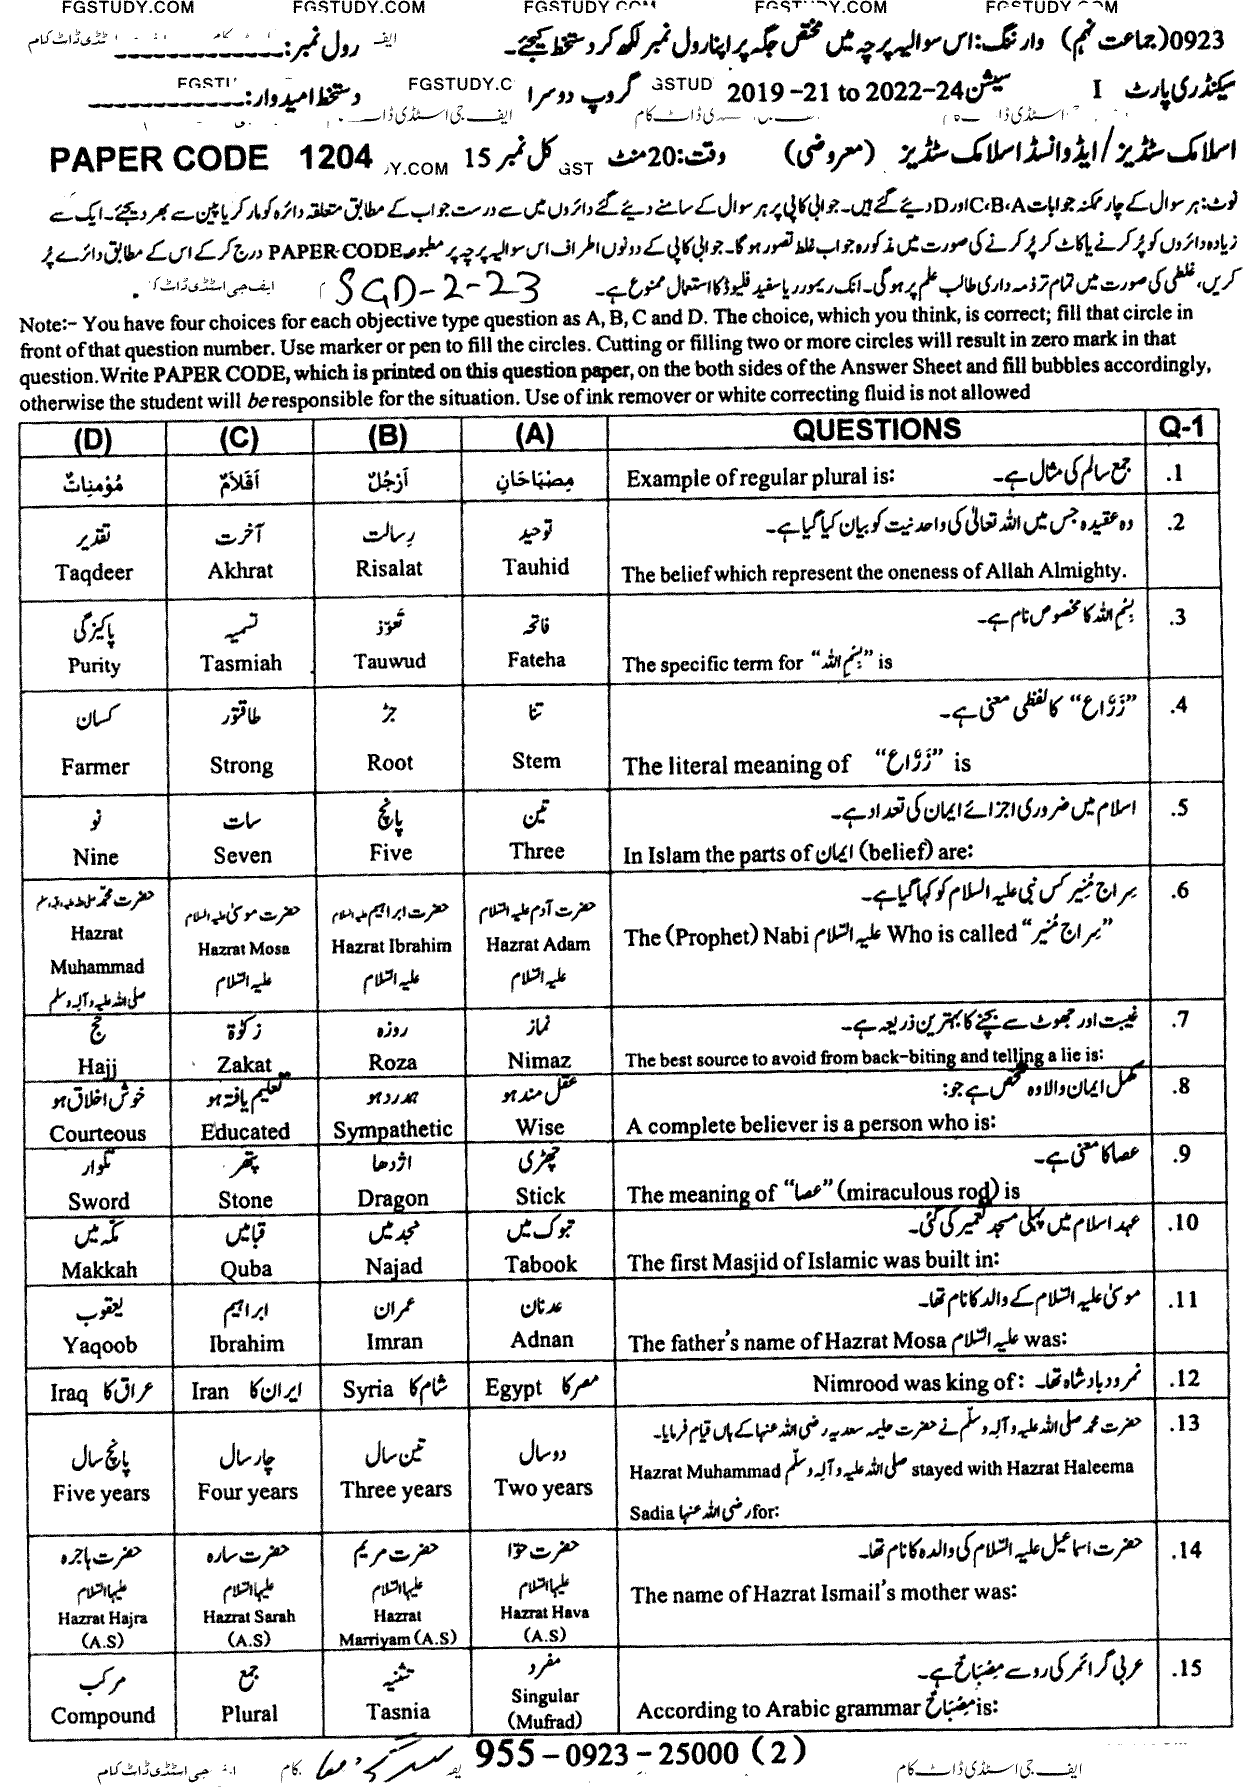 FGSTUDY.COM FGSTUDY.COM FGSTUDY.COM FGSTUDY.COM FGSTUDY.COM
0923(جماعت نہم) وارننگ: اس سوالیہ پرچہ میں مختص جگہ پر اپنا رول نمبر لکھ کر دستخط کیجئے۔ رول نمبر:____________
سیکنڈری پارٹ I سیشن 2019-21 to 2022-24 گروپ دوسرا دستخط امیدوار:____________
اسلامک سٹڈیز/ایڈوانسڈ اسلامک سٹڈیز (معروضی) وقت:20 منٹ کل نمبر 15 PAPER CODE 1204
نوٹ: ہر سوال کے چار ممکنہ جوابات A،B،C اور D دیئے گئے ہیں۔ جوابی کاپی پر ہر سوال کے سامنے دیئے گئے دائروں میں سے درست جواب کے مطابق متعلقہ دائرہ کو مارکر یا پین سے بھر دیجئے۔ ایک سے
زیادہ دائروں کو پُر کرنے یا کاٹ کر پُر کرنے کی صورت میں مذکورہ جواب غلط تصور ہوگا۔ جوابی کاپی کے دونوں اطراف اس سوالیہ پرچہ پر مطبوعہ PAPER CODE درج کر کے اس کے مطابق دائرے پُر
کریں، غلطی کی صورت میں تمام تر ذمہ داری طالب علم پر ہوگی۔ انک ریمور یا سفید فلیوڈ کا استعمال ممنوع ہے۔ SGD-2-23
Note:- You have four choices for each objective type question as A, B, C and D. The choice, which you think, is correct; fill that circle in
front of that question number. Use marker or pen to fill the circles. Cutting or filling two or more circles will result in zero mark in that
question. Write PAPER CODE, which is printed on this question paper, on the both sides of the Answer Sheet and fill bubbles accordingly,
otherwise the student will be responsible for the situation. Use of ink remover or white correcting fluid is not allowed
(D) (C) (B) (A) QUESTIONS Q-1
مُؤْمِنَاتٌ اَقْلَامٌ اَرْجُلٌ مِصْبَاحَانِ Example of regular plural is: جمع سالم کی مثال ہے۔ .1
تقدیر آخرت رسالت توحید وہ عقیدہ جس میں اللہ تعالیٰ کی واحدنیت کو بیان کیا گیا ہے۔ .2
Taqdeer Akhrat Risalat Tauhid The belief which represent the oneness of Allah Almighty.
پاکیزگی تسمیہ تَعَوّذ فاتحہ بِسْمِ اللہ کا مخصوص نام ہے۔ .3
Purity Tasmiah Tauwud Fateha The specific term for "بِسْمِ اللہ" is
کسان طاقتور جڑ تنا "زَرَّاع" کا لفظی معنی ہے۔ .4
Farmer Strong Root Stem The literal meaning of "زَرَّاع" is
نو سات پانچ تین اسلام میں ضروری اجزائے ایمان کی تعداد ہے۔ .5
Nine Seven Five Three In Islam the parts of ایمان (belief) are:
حضرت محمد صلی اللہ علیہ وآلہ وسلم حضرت موسیٰ علیہ السلام حضرت ابراہیم علیہ السلام حضرت آدم علیہ السلام سِراجِ مُنِیر کس نبی علیہ السلام کو کہا گیا ہے۔ .6
Hazrat Muhammad صلی اللہ علیہ وآلہ وسلم Hazrat Mosa علیہ السّلام Hazrat Ibrahim علیہ السّلام Hazrat Adam علیہ السّلام The (Prophet) Nabi علیہ السّلام Who is called "سِراجِ مُنیر"
حج زکوٰۃ روزہ نماز غیبت اور جھوٹ سے بچنے کا بہترین ذریعہ ہے۔ .7
Hajj Zakat Roza Nimaz The best source to avoid from back-biting and telling a lie is:
خوش اخلاق ہو تعلیم یافتہ ہو ہمدرد ہو عقل مند ہو مکمل ایمان والا وہ شخص ہے جو: .8
Courteous Educated Sympathetic Wise A complete believer is a person who is:
تلوار پتھر اژدھا چھڑی عصا کا معنی ہے۔ .9
Sword Stone Dragon Stick The meaning of "عصا" (miraculous rod) is
مکہ میں قبا میں نجد میں تبوک میں عہد اسلام میں پہلی مسجد تعمیر کی گئی۔ .10
Makkah Quba Najad Tabook The first Masjid of Islamic was built in:
یعقوب ابراہیم عمران عدنان موسیٰ علیہ السّلام کے والد کا نام تھا۔ .11
Yaqoob Ibrahim Imran Adnan The father's name of Hazrat Mosa علیہ السّلام was:
Iraq عراق کا Iran ایران کا Syria شام کا Egypt مصر کا Nimrood was king of: نمرود بادشاہ تھا۔ .12
پانچ سال چار سال تین سال دو سال حضرت محمد صلی اللہ علیہ وآلہ وسلّم نے حضرت حلیمہ سعدیہ رضی اللہ عنہا کے ہاں قیام فرمایا۔ .13
Five years Four years Three years Two years Hazrat Muhammad صلی اللہ علیہ وآلہ وسلّم stayed with Hazrat Haleema
Sadia رضی اللہ عنہا for:
حضرت ہاجرہ علیہا السّلام حضرت سارہ علیہا السّلام حضرت مریم علیہا السّلام حضرت حوّا علیہا السّلام حضرت اسماعیل علیہ السّلام کی والدہ کا نام تھا۔ .14
Hazrat Hajra (A.S) Hazrat Sarah (A.S) Hazrat Marriyam (A.S) Hazrat Hava (A.S) The name of Hazrat Ismail's mother was:
مرکب جمع تثنیہ مفرد عربی گرائمر کی رو سے مِصْبَاحٌ ہے۔ .15
Compound Plural Tasnia Singular (Mufrad) According to Arabic grammar مِصْبَاحٌ is:
955-0923-25000 (2)
ایف جی اسٹڈی ڈاٹ کام